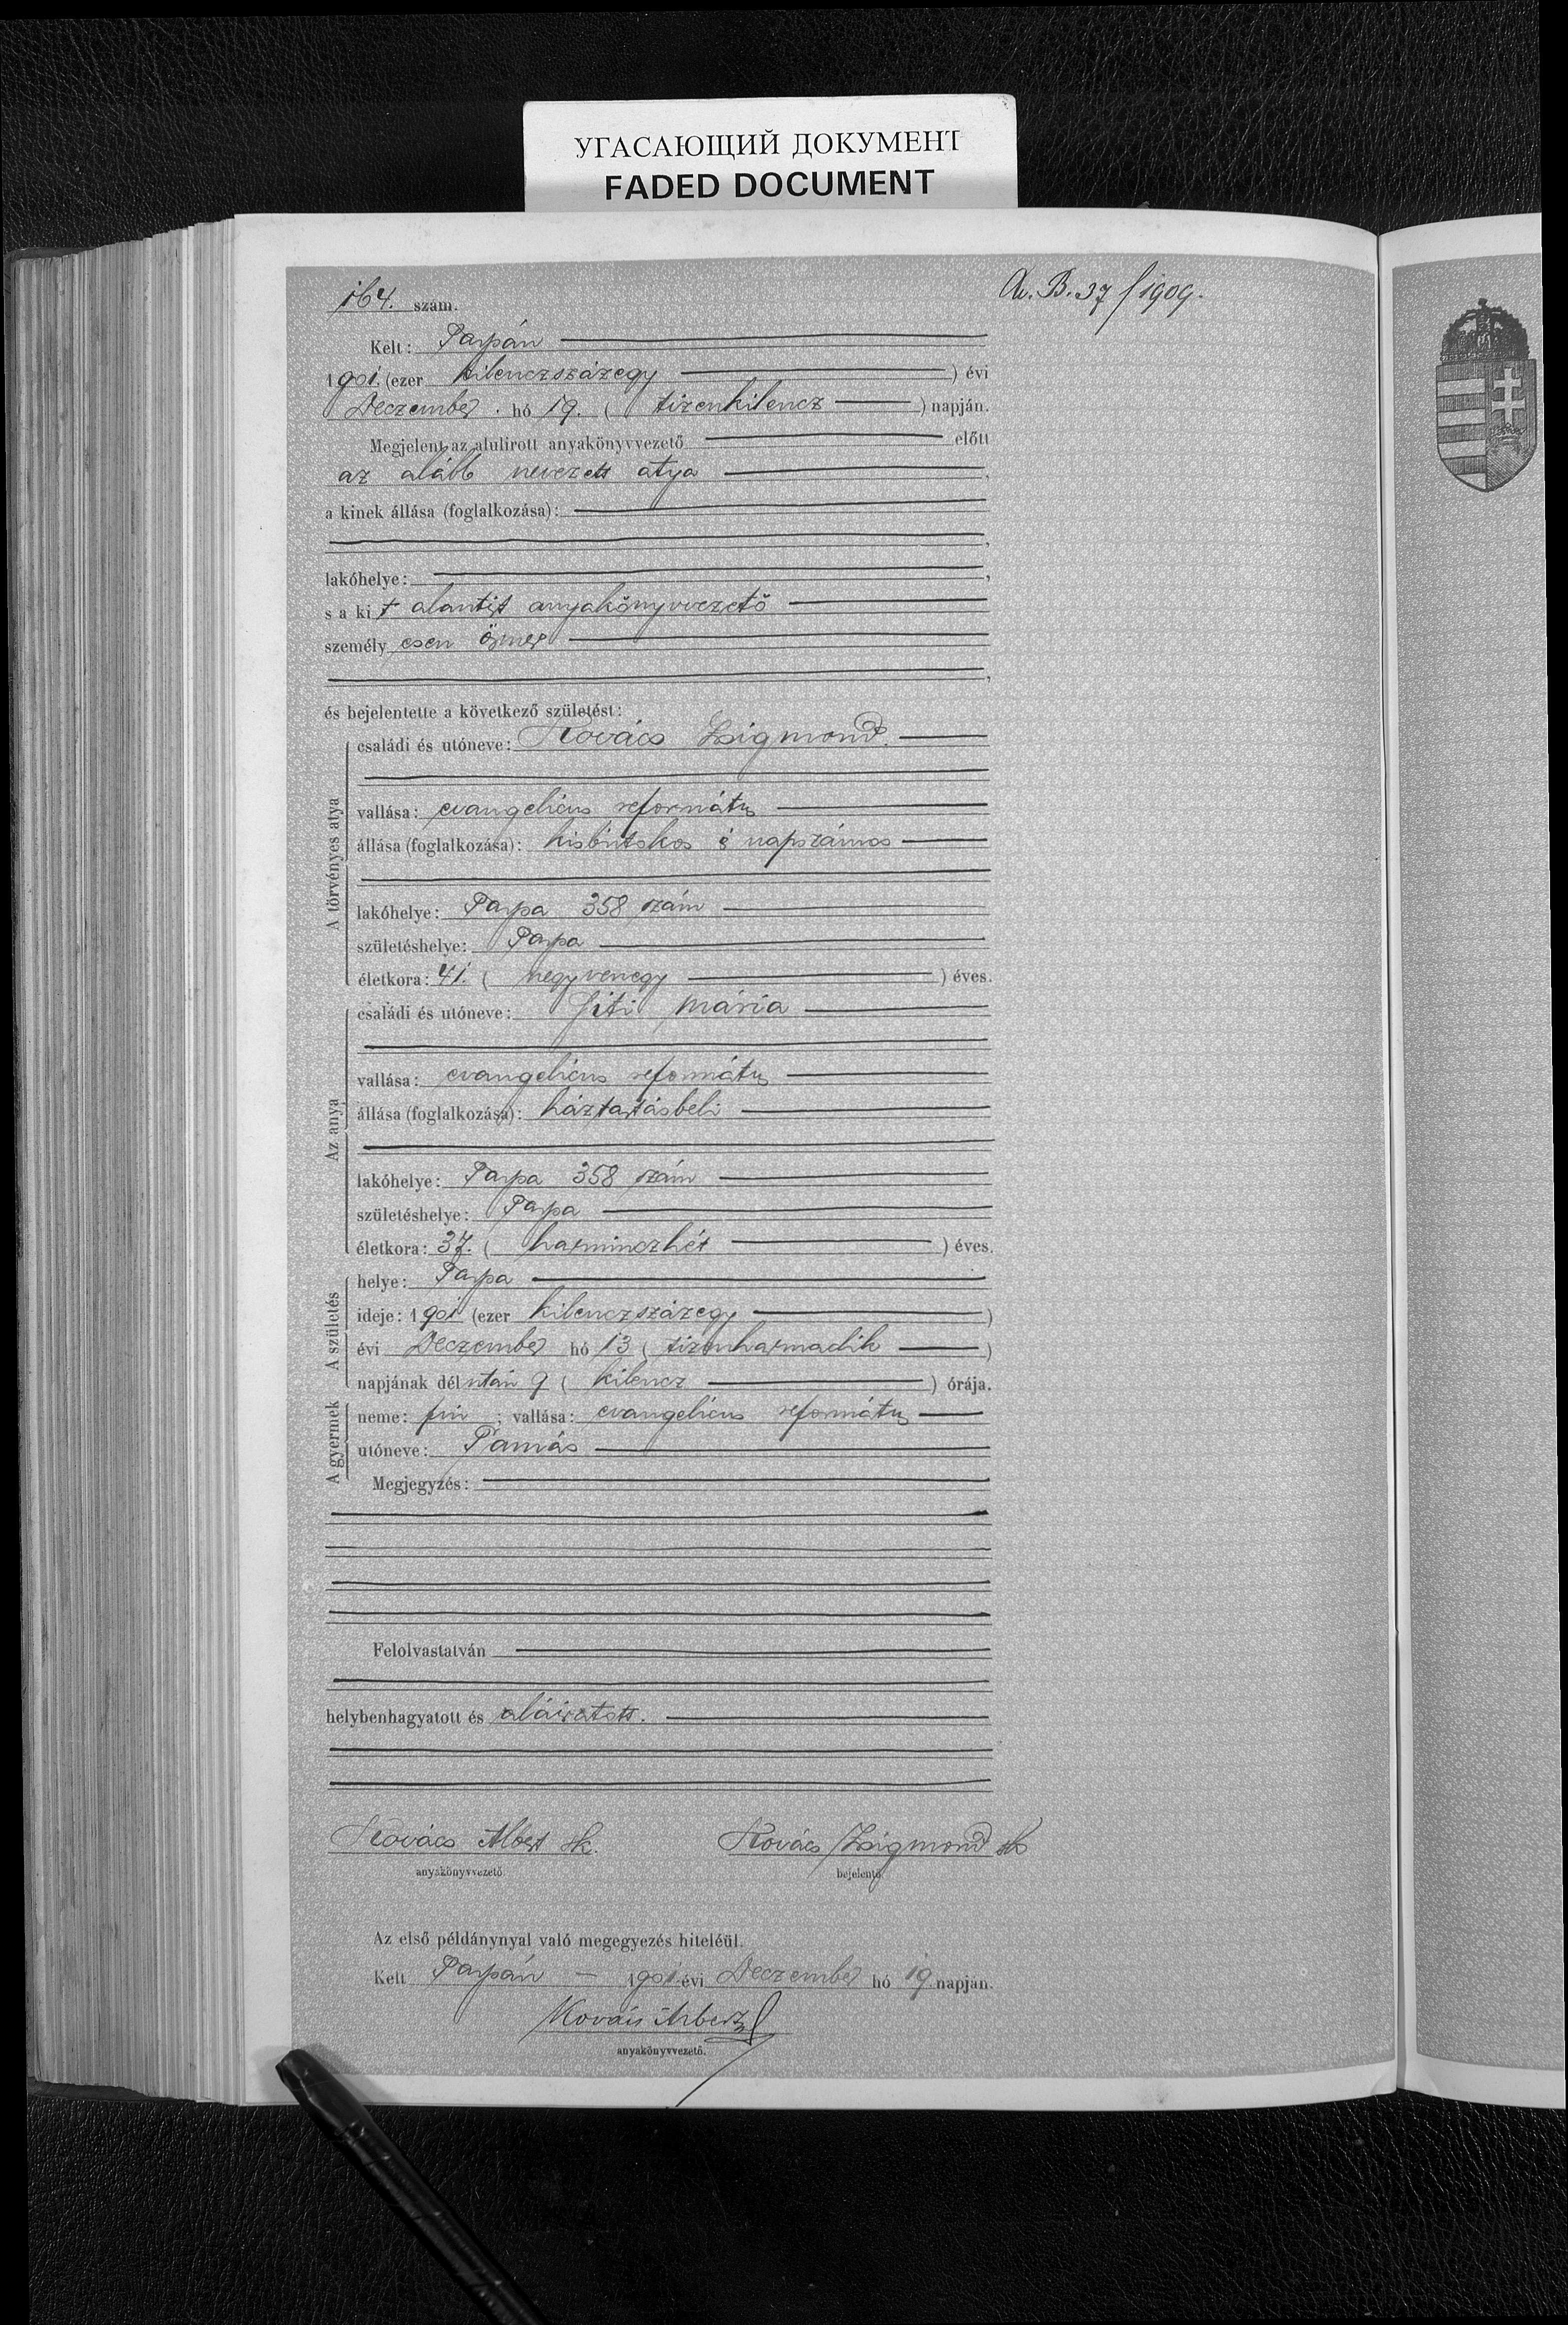 УГАСАЮЩИЙ ДОКУМЕНТ
FADED DOCUMENT
164. szám.
A. B. 37/1909.
Kelt: Tarpán
1901. (ezer kilenczszázegy ) évi
Deczember hó 19. ( tizenkilencz ) napján.
Megjelent az alulirott anyakönyvvezető előtt
az alább nevezett atya
a kinek állása (foglalkozása):
lakóhelye:
s a kit alantirt anyakönyvvezető
személyesen ösmer
és bejelentette a következő születést:
A törvényes atya
családi és utóneve: Kovács Zsigmond.
vallása: evangelicus református
állása (foglalkozása): kisbirtokos s napszámos
lakóhelye: Tarpa 358 szám
születéshelye: Tarpa
életkora: 41. ( negyvenegy ) éves.
Az anya
családi és utóneve: Siti Mária
vallása: evangelicus református
állása (foglalkozása): háztartásbeli
lakóhelye: Tarpa 358 szám
születéshelye: Tarpa
életkora: 37. ( harminczhét ) éves.
A születés
helye: Tarpa
ideje: 1901 (ezer kilenczszázegy )
évi Deczember hó 13 ( tizenharmadik )
napjának délután 9 ( kilencz ) órája.
A gyermek
neme: fiú ; vallása: evangelicus református
utóneve: Tamás
Megjegyzés:
Felolvastatván
helybenhagyatott és aláiratott.
Kovács Albert sk. Kovács Zsigmond sk
anyakönyvvezető bejelentő.
Az első példánynyal való megegyezés hiteléül.
Kelt Tarpán – 1901 évi Deczember hó 19. napján.
Kovács Albert
anyakönyvvezető.